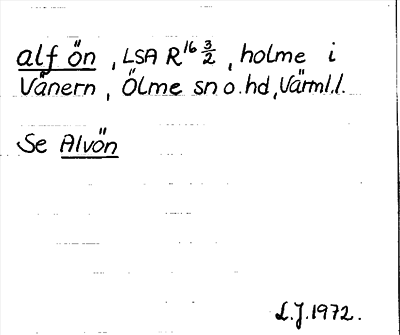 alf ön, LSA R16 3/2, holme i
Vänern, Ölme sn o. hd, Värml.l.
Se Alvön
L.J. 1972.